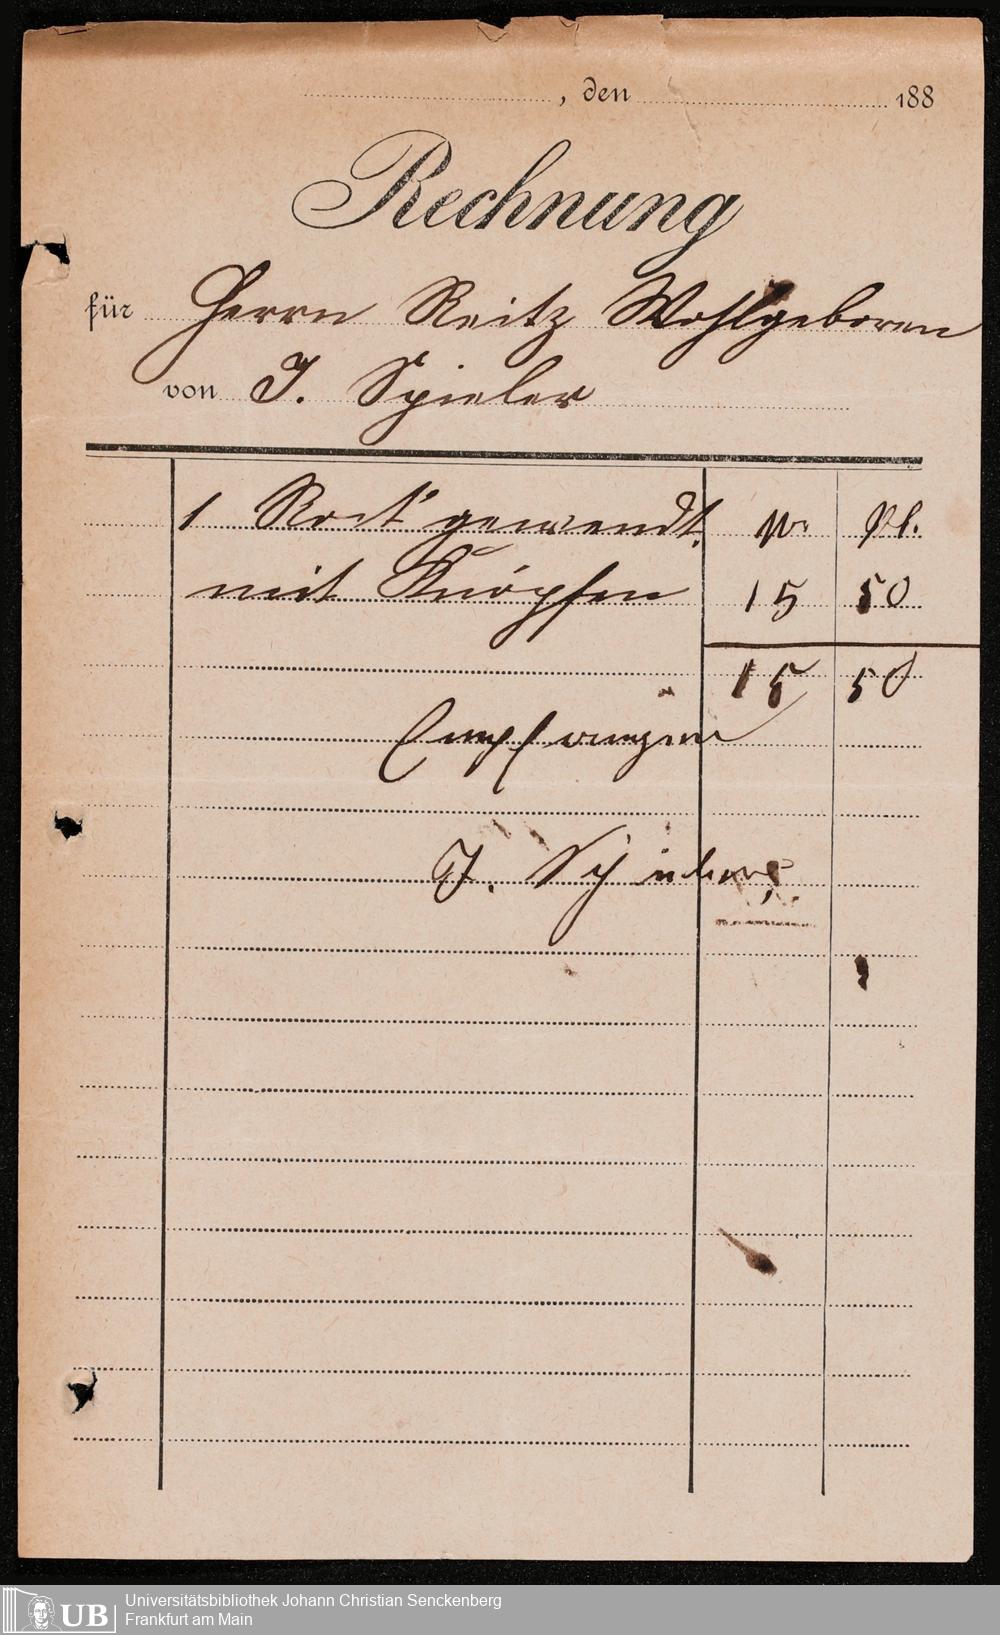 , den 188
Rechnung
für Herrn Reitz Wohlgeboren
von J. Spieler
1 Rock gewendt. M. Pf.
mit Knöpfen 15 50
15 50
Empfangen
J. Spieler
Universitätsbibliothek Johann Christian Senckenberg
Frankfurt am Main
UB